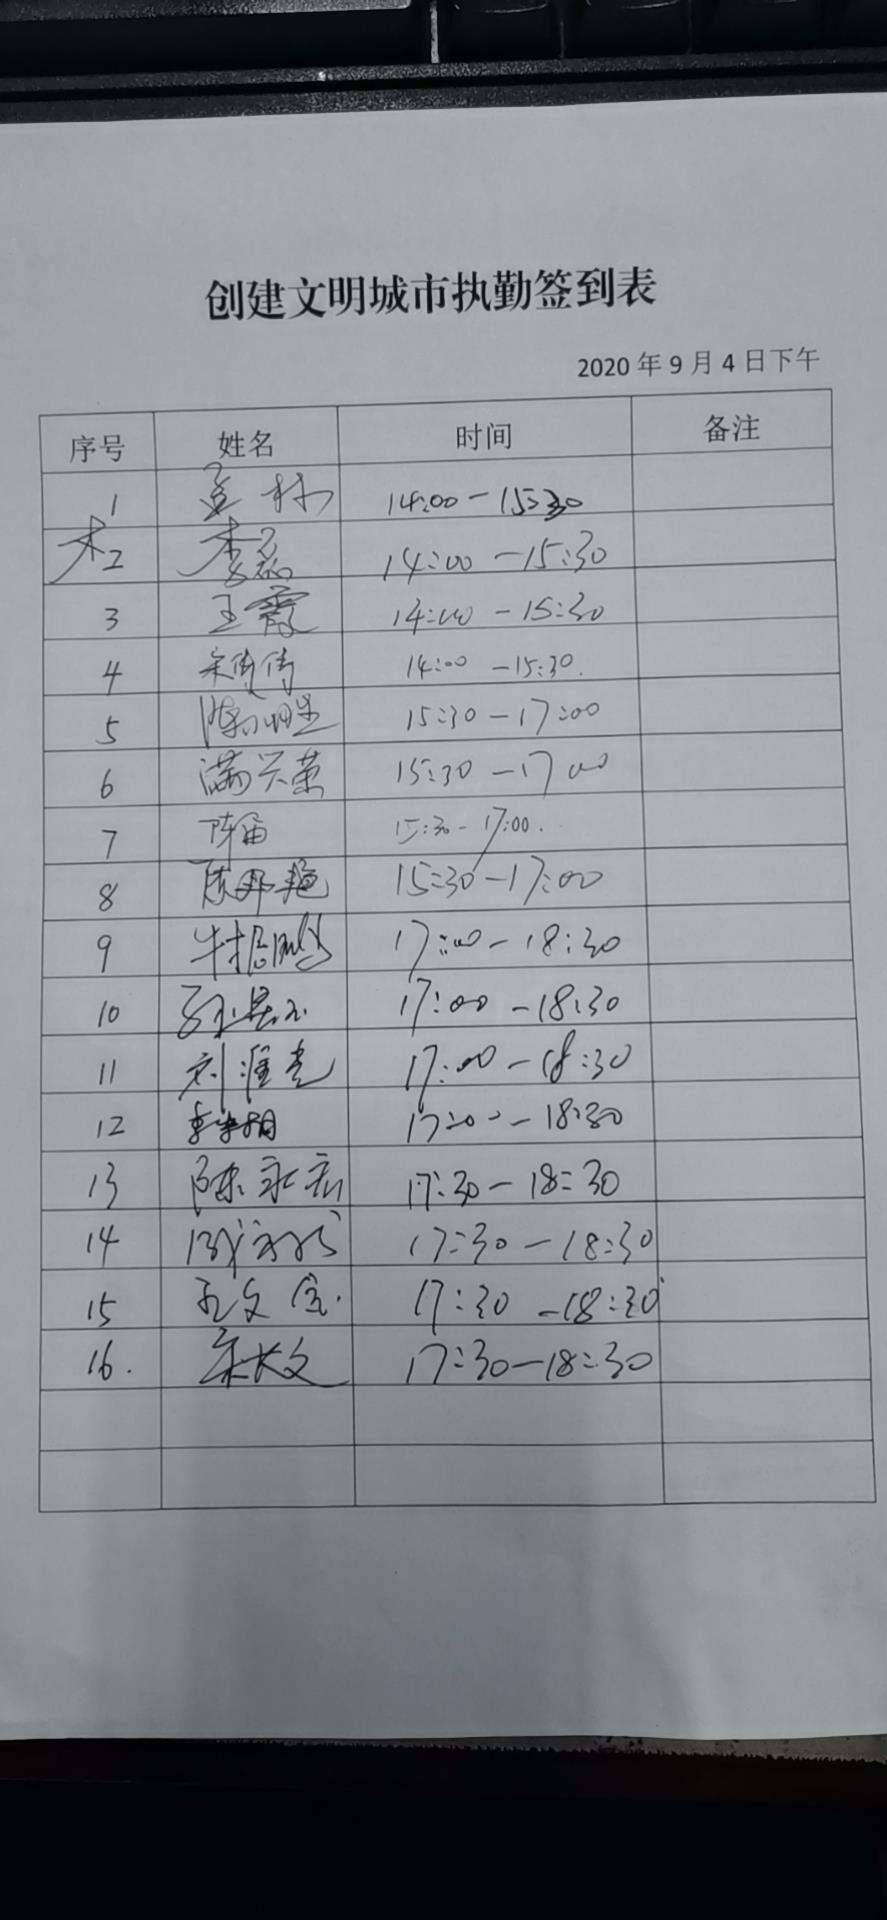 创建文明城市执勤签到表
2020年9月4日下午
序号 姓名 时间 备注
1 14:00-15:30
2 李磊 14:00-15:30
3 王霞 14:00-15:30
4 宋倩倩 14:00-15:30.
5 15:30-17:00
6 满兴荣 15:30-17 00
7 陈雷 15:30-17:00.
8 15:30-17:00
9 17:00-18:30
10 17:00-18:30
11 刘淮亮 17:00-18:30
12 17:00-18:30
13 陈永宏 17:30-18:30
14 17:30-18:30
15 孔文宝. 17:30-18:30
16. 宋长文 17:30-18:30